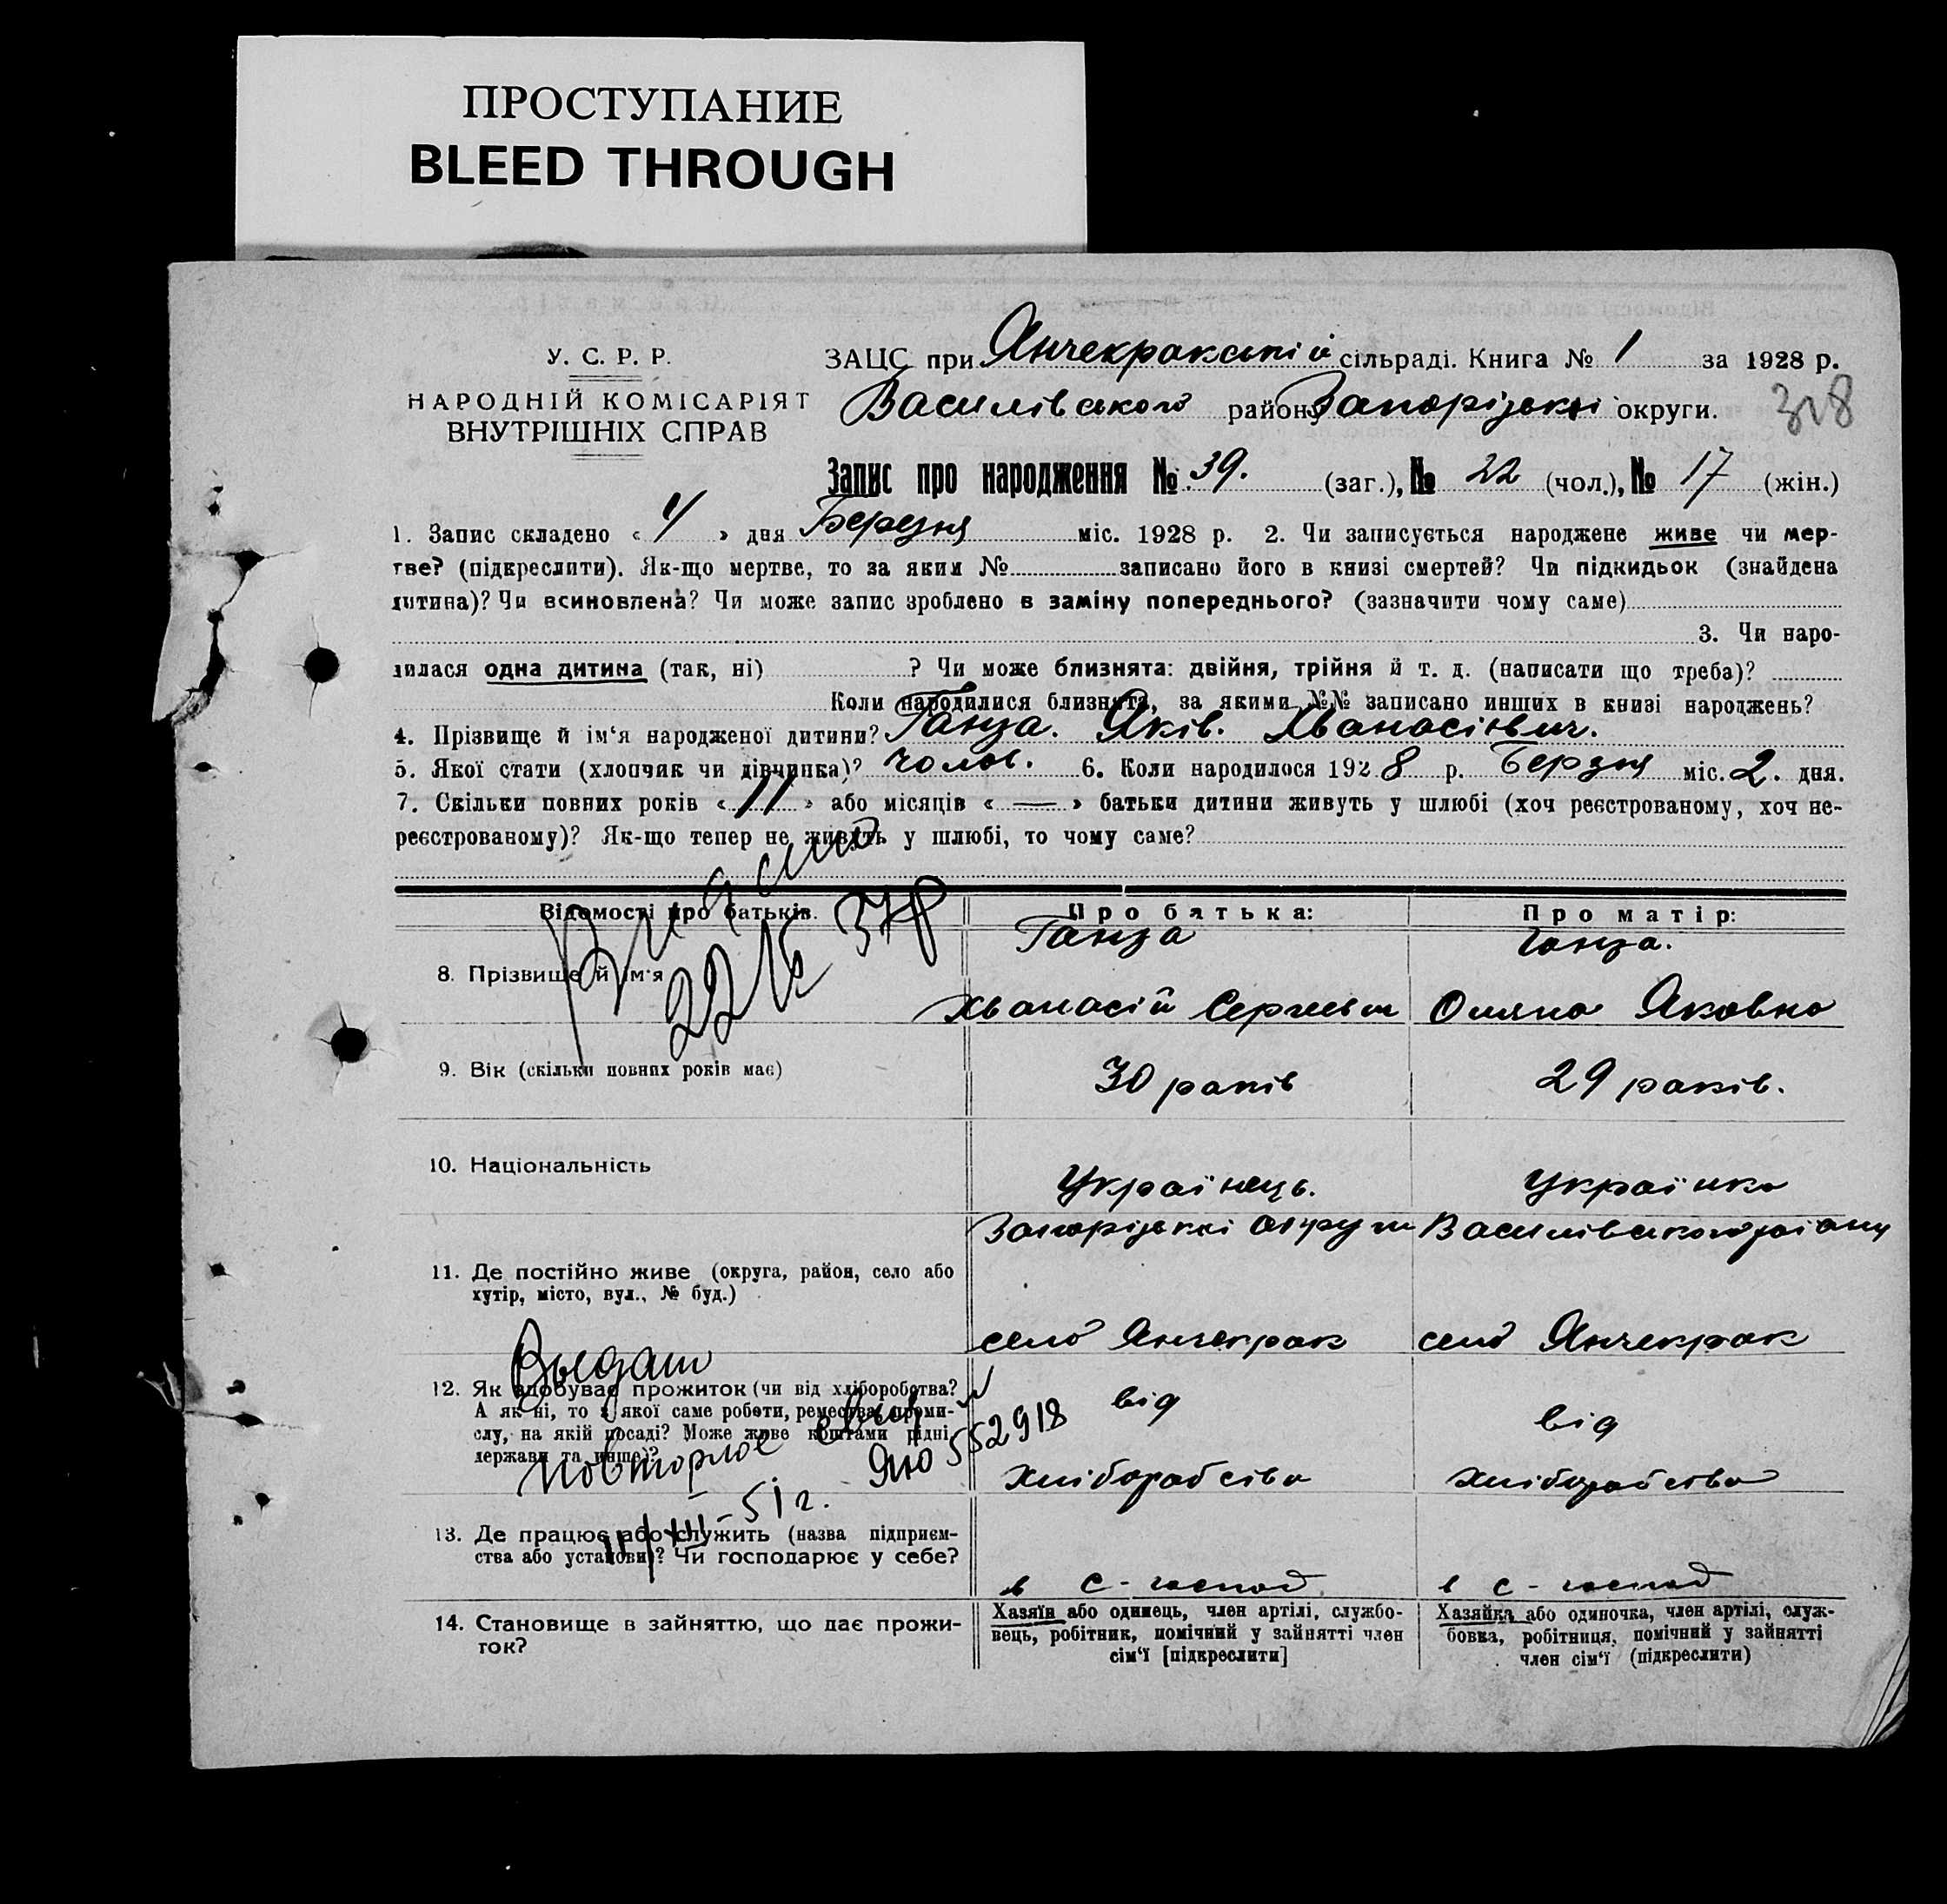 ПРОСТУПАНИЕ
BLEED THROUGH
У. С. Р. Р.
НАРОДНІЙ КОМІСАРІЯТ
ВНУТРІШНІХ СПРАВ
ЗАЦС при Янчекракській сільраді. Книга № 1 за 1928 р.
Василівського району Запорізької округи.
318
Запис про народження № 39. (заг.), № 22 (чол.), № 17 (жін.)
1. Запис складено « 4 » дня Березня міс. 1928 р. 2. Чи записується народжене живе чи мер-
тве? (підкреслити). Як-що мертве, то за яким № записано його в книзі смертей? Чи підкидьок (знайдена
дитина)? Чи всиновлена? Чи може запис зроблено в заміну попереднього? (зазначити чому саме)
3. Чи наро-
дилася одна дитина (так, ні) ? Чи може близнята: двійня, трійня й т. д. (написати що треба)?
Коли народилися близнята, за якими №№ записано инших в книзі народжень?
4. Прізвище й ім‘я народженої дитини? Ганза. Яків. Хванасієвич.
5. Якої стати (хлопчик чи дівчинка)? чолов. 6. Коли народилося 1928 р. Берзня міс. 2. дня.
7. Скільки повних років « 11 » або місяців « — » батьки дитини живуть у шлюбі (хоч реєстрованому, хоч не-
реєстрованому)? Як-що тепер не живуть у шлюбі, то чому саме?
Відомості про батьків. Про батька: Про матір:
8. Прізвище й ім‘я
Ганза
Хванасій Сергиевич
Ганза.
Оляна Яковна
9. Вік (скільки повних років має) 30 років 29 років.
10. Національність Українець. Українка
11. Де постійно живе (округа, район, село або
хутір, місто, вул., № буд.)
Запорізької округи Василівського району
село Янчекрак село Янчекрак
12. Як здобуває прожиток (чи від хліборобства?
А як ні, то з якої саме роботи, ремества, проми-
слу, на якій посаді? Може живе коштами рідні,
держави та инше)?
від
хліборобства
від
хліборобства
Выдано
повторное свид
ЯЮ 552918
III-51 г.
13. Де працює або служить (назва підприєм-
ства або установи)? Чи господарює у себе?
в с-господ. в с-господ
14. Становище в зайняттю, що дає прожи-
ток?
Хазяїн або одинець, член артілі, службо-
вець, робітник, помічний у зайнятті член
сім‘ї [підкреслити]
Хазяйка або одиночка, член артілі, служ-
бовка, робітниця, помічний у зайнятті
член сім‘ї (підкреслити)